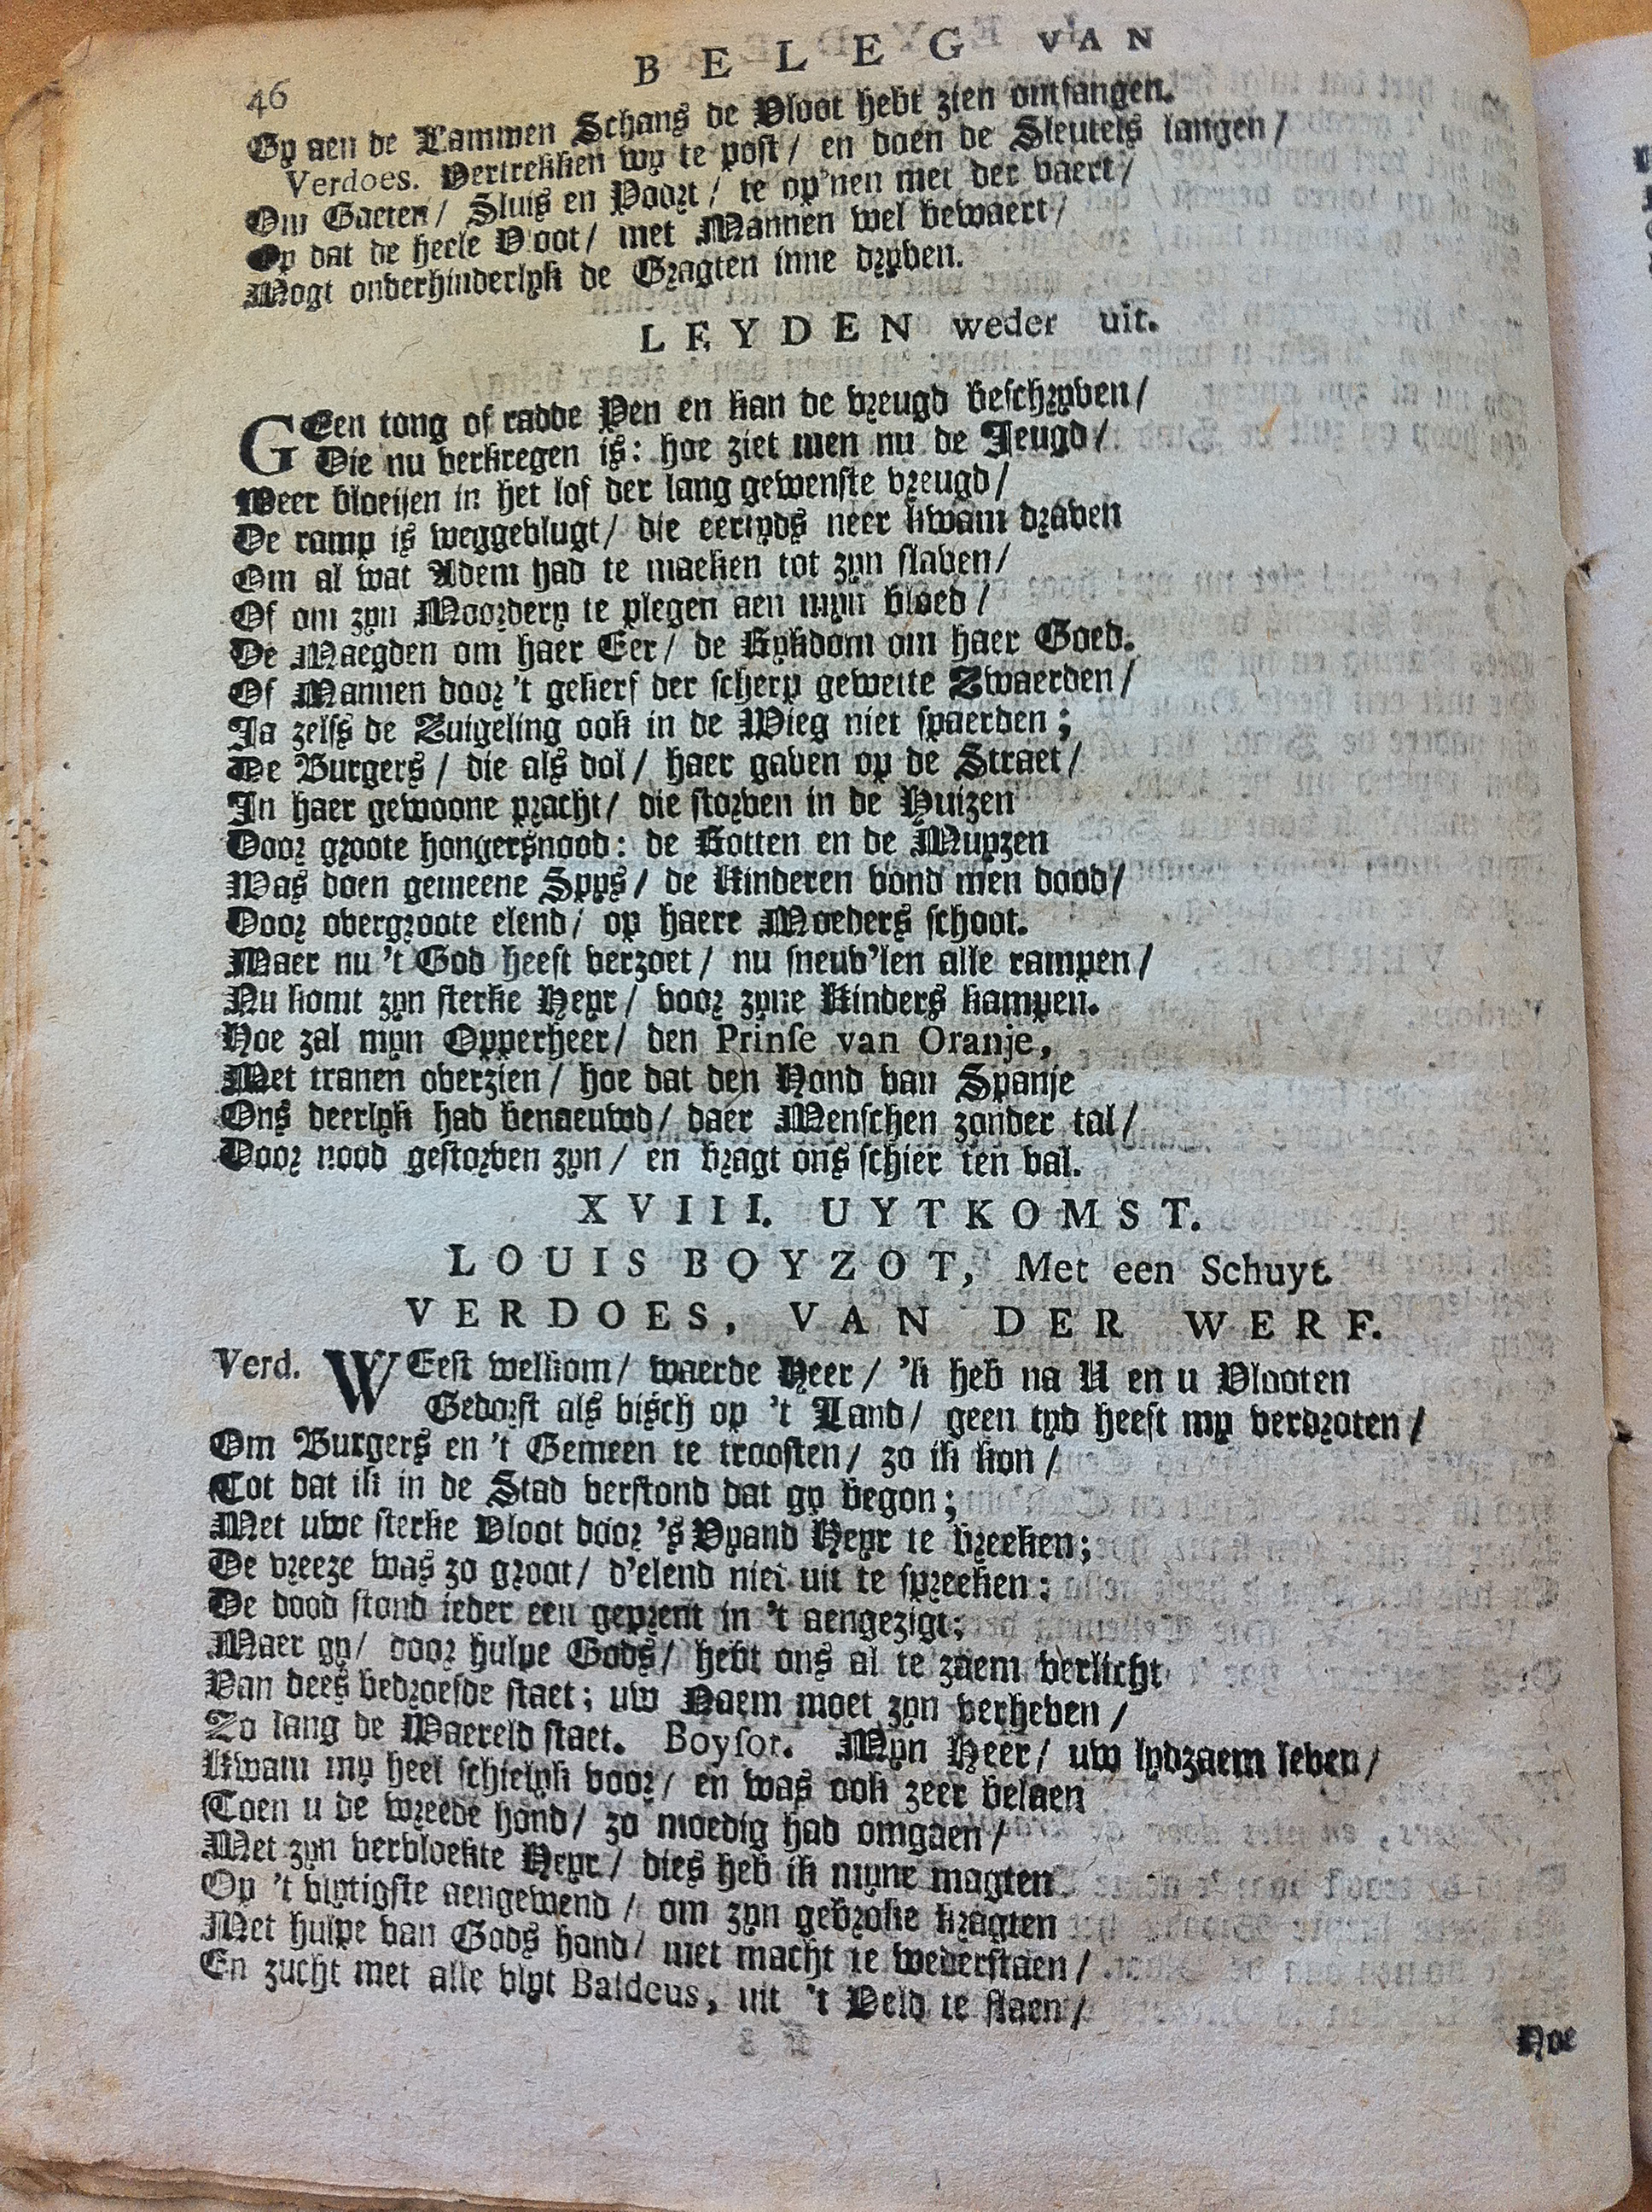 46 BELEG VAN
Gy aen de Lammen Schans de Vloot hebt zien omfangen.
Verdoes. Vertrekken wy te post / en doen de Sleutels langen /
Om Gaeten / Sluis en Poort / te op'nen met der vaert /
Op dat de heele V oot / met Mannen wel bewaert /
Mogt onverhinderlyk de Gragten inne dryven.
LEYDEN weder uit.
GEen tong of radde Pen en kan de vreugd beschryven /
Die nu verkregen is: hoe ziet men nu de Jeugd /
Weer bloeijen in het lof der lang gewenste vreugd /
De ramp is weggevlugt / die eertyds neer kwam draven
Om al wat Adem had te maeken tot zyn slaven /
Of om zyn Moordery te plegen aen myn bloed /
De Maegden om haer Eer / de Rykdom om haer Goed.
Of Mannen door 't gekerf der scherp gewette Zwaerden /
Ja zelfs de Zuigeling ook in de Wieg niet spaerden;
De Burgers / die als dol / haer gaven op de Straet /
In haer gewoone pracht / die storven in de Huizen
Door groote hongersnood: de Rotten en de Muyzen
Was doen gemeene Spys / de Kinderen vond men dood /
Door overgroote elend / op haere Moeders schoot.
Maer nu 't God heeft verzoet / nu sneuv'len alle rampen /
Nu komt zyn sterke Heyr / voor zyne Kinders kampen.
Hoe zal myn Opperheer / den Prinse van Oranje,
Met tranen overzien / hoe dat den Hond van Spanje
Ons deerlyk had benaeuwd / daer Menschen zonder tal /
Door nood gestorven zyn / en bragt ons schier ten val.
XVIII. UYTKOMST.
LOUIS BOYZOT, Met een Schuyt.
VERDOES, VAN DER WERF.
Verd. WEest welkom / waerde Heer / 'k heb na U en u Vlooten
Gedorst als visch op 't Land / geen tyd heeft my verdroten /
Om Burgers en 't Gemeen te troosten / zo ik kon /
Tot dat ik in de Stad verstond dat gy begon;
Met uwe sterke Vloot door 's Vyand Heyr te breeken;
De vreeze was zo groot / d'elend niet uit te spreeken:
De dood stond ieder een geprent in 't aengezigt;
Maer gy / door hulpe Gods / hebt ons al te zaem verlicht
Van dees bedroefde staet; uw Naem moet zyn verheven /
Zo lang de Waereld staet. Boysot. Myn Heer / uw lydzaem leven /
Kwam my heel schielyk voor / en was ook zeer belaen
Toen u de wreede hond / zo moedig had omgaen /
Met zyn vervloekte Heyr / dies heb ik myne magten
Op 't vlytigste aengewend / om zyn gebroke kragten
Met hulpe van Gods hand / met macht te wederstaen /
En zucht met alle vlyt Baldeus, uit 't Veld te slaen /
Hoe